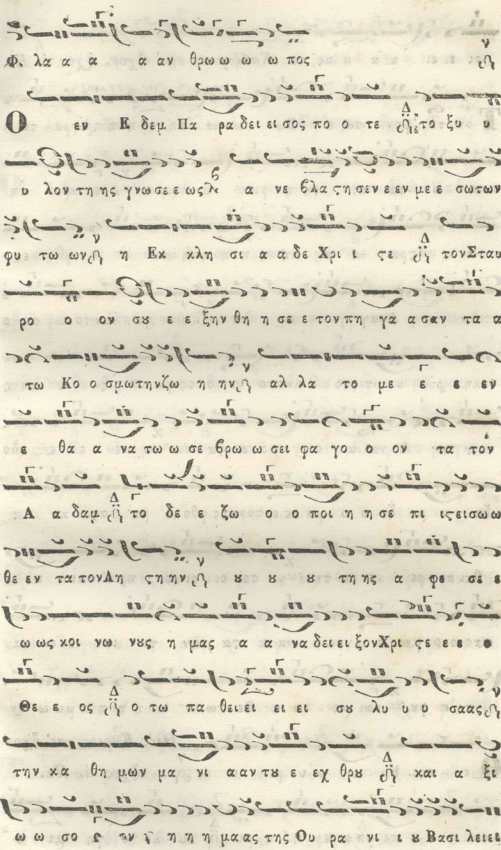 Φ. λα α α α αν θρω ω ω ω πος
Ο εν Ε δεμ Πα ρα δει εισος πο ο τε το ξυ υ
υ λον τη ης γνωσε ε ως α νε βλα ςησεν ε εν με ε σωτων
φυ τω ων η Εκ κλη σι α α δε Χρι ι ςε τον Σταυ
ρο ο ον σου ε ε ξην θη η σε ε τον πη γα α σαν τα α
τω Κο ο σμω την ζω η ην αλ λα το με ε ε εν
ε θα α να τω ω σε βρω ω σει φα γο ο ον τα τον
Α α δαμ το δε ε ζω ο ο ποι η η σε πι ιςεισω ω
θε εν τα τον Λη ςη ην ου ου ου ου τη ης α φε σε ε
ω ως κοι νω νους η μας α α να δει ει ξον Χρι ςε ε ε ο
Θε ε ος ο τω πα θει ει ει ει ει σου λυ υ υ σα ας
την κα θη μων μα νι α αν του ε εχ θρου και α ξι
ω ω σο η η η μα ας της Ου ρα νι ι ου Βασι λειει